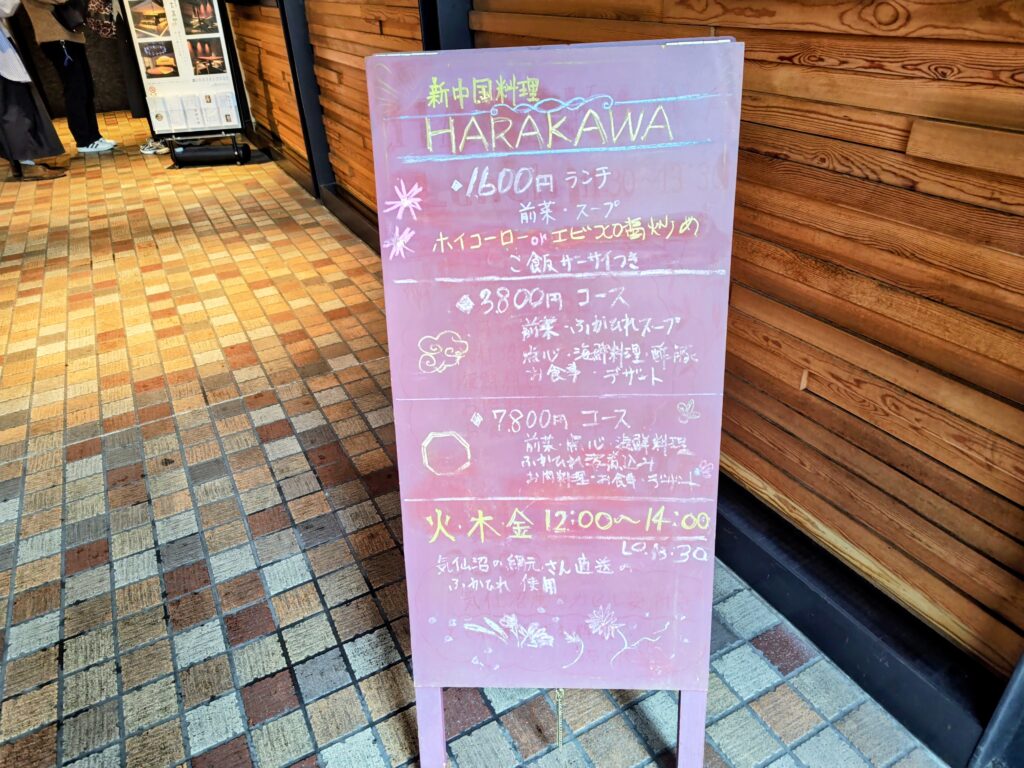 新中国料理
HARAKAWA
1600円 ランチ
前菜・スープ
ホイコーロー or エビXO醤炒め
ご飯 ザーサイつき
3800円 コース
前菜・ふかひれスープ
点心・海鮮料理・酢豚
お食事・デザート
7800円 コース
前菜・点心・海鮮料理
ふかひれ
お肉料理・お食事・デザート
火・木・金 12:00〜14:00
LO.13:30
気仙沼の網元さん直送の
ふかひれ 使用